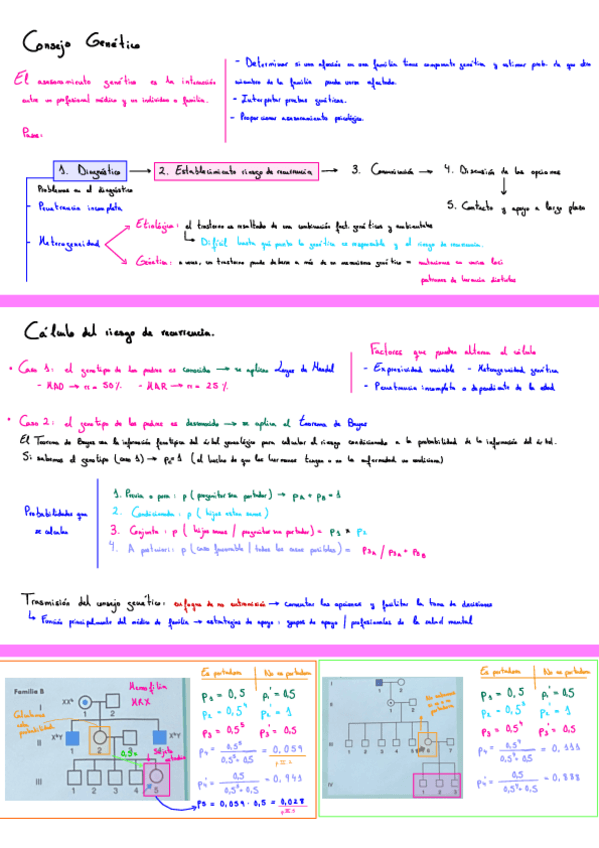 Consejo Genético
El asesoramiento genético es la interacción
entre un profesional médico y un individuo o familia.
- Determinar si una afección en una familia tiene componente genético y estimar prob. de que otro
miembro de la familia pueda verse afectado.
- Interpretar pruebas genéticas.
- Proporcionar asesoramiento psicológico.
Pasos:
1. Diagnóstico → 2. Establecimiento riesgo de recurrencia → 3. Comunicación → 4. Discusión de las opciones
5. Contacto y apoyo a largo plazo
Problemas en el diagnóstico
- Penetrancia incompleta
- Heterogeneidad
Etiológica: el trastorno es resultado de una combinación fact. genéticos y ambientales
Difícil hasta qué punto la genética es responsable y el riesgo de recurrencia.
Genética: a veces, un trastorno puede deberse a más de un mecanismo genético = mutaciones en varios loci
patrones de herencia distintos
Cálculo del riesgo de recurrencia.
• Caso 1: el genotipo de los padres es conocido → se aplican Leyes de Mendel
- HAD → r = 50% - HAR → r = 25%
Factores que pueden alterar el cálculo
- Expresividad variable - Heterogeneidad genética
- Penetrancia incompleta o dependiente de la edad
• Caso 2: el genotipo de los padres es desconocido → se aplica el Teorema de Bayes
El Teorema de Bayes usa la información fenotípica del árbol genealógico para calcular el riesgo condicionado a la probabilidad de la información del árbol.
Si sabemos el genotipo (caso 1) → p2=1 (el hecho de que los hermanos tengan o no la enfermedad no condiciona)
Probabilidades que
se calculan
1. Previa o priori: p (progenitor sea portador) → pA + pB = 1
2. Condicionada: p (hijos estén sanos)
3. Conjunta: p (hijos sanos / progenitor sea portador) = p1 * p2
4. A posteriori: p (caso favorable / todos los casos posibles) = p3A / p3A + p3B
Trasmisión del consejo genético: enfoque de no autoridad → comentar las opciones y facilitar la toma de decisiones
Función principalmente del médico de familia → estrategias de apoyo: grupos de apoyo / profesionales de la salud mental
Familia B
Hemofilia
HRX
XXʰ
I
1 2
Calculamos
esta
probabilidad
XʰY
II
1 2 3
XʰY
Sujeto
III
1 2 3 4 5
Es portadora No es portadora
p1 = 0,5 p1' = 0,5
p2 = 0,5⁴ p2' = 1
p3 = 0,5⁵ p3' = 0,5
p4 = 0,5⁵ / 0,5⁵ + 0,5 = 0,059
p4' = 0,5 / 0,5⁵ + 0,5 = 0,943
p5 = 0,059 · 0,5 = 0,028
I
1 2
II
1 2
III
1 2 3 4 5 6 7
IV
1 2 3
Es portadora No es portadora
p1 = 0,5 p1' = 0,5
p2 = 0,5³ p2' = 1
p3 = 0,5⁴ p3' = 0,5
p4 = 0,5⁴ / 0,5⁴ + 0,5 = 0,111
p4' = 0,5 / 0,5⁴ + 0,5 = 0,888